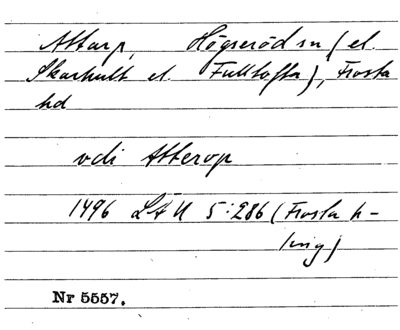 Attarp, Högseröd sn (el.
Skarhult el. Fulltofta), Frosta
hd
vdi Atterop
1496 LÄU 5:286 (Frosta h-
ing)
Nr 5557.